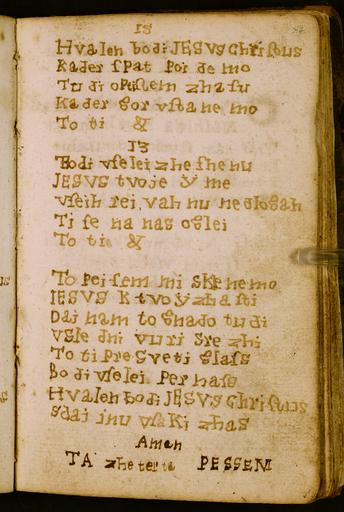 13
Hvalen bodi JESVS Christus
Kader spat poi de mo
Tudi opustem zhasu
Kader gor vstane mo
To ti &
13
Bodi vselei zheshenu
JESVS tvoje y me
vseih rei vah nu nedlogah
Ti se na nas oglei
To ti &
To pei sem mi skle nemo
JESVS K tvoy zhasti
Dai nam to gnado tudi
vsse dni vuri sre zhi
To ti pre sveti glass
Bodi vselei per nass
Hvalen bodi JESVS Christus
sdai inu vsaki zhas
Amen
TA zhe ter ta PESSEM